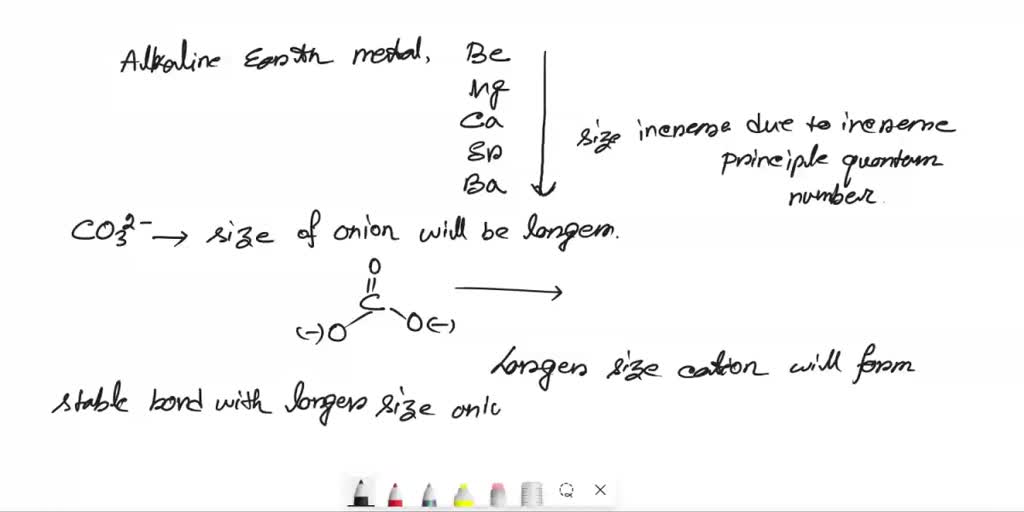 Alkaline Earth metal, Be
Mg
Ca
Sr
Ba
size increase due to increase
principle quantum
number.
CO₃²⁻ → size of anion will be larger.
O
C
(-)O O(-)
Larger size cation will form
stable bond with larger size anio